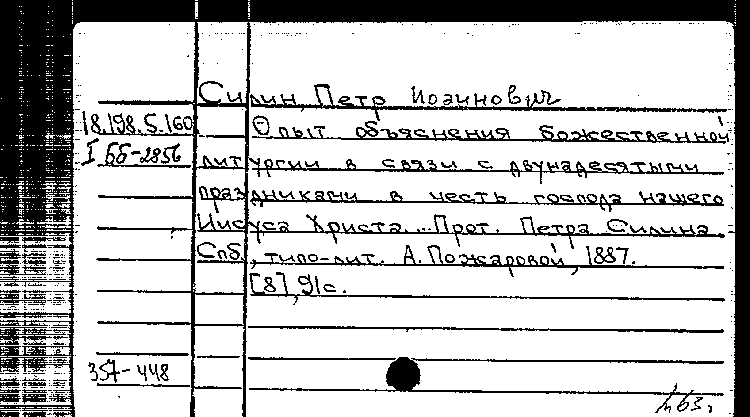 Силин, Петр Иоаннович
18.198.5.160 Опыт объяснения божественной
I ББ-2856 литургии в связи с двунадесятыми
праздниками в честь господа нашего
Иисуса Христа. ...Прот. Петра Силина
Спб., типо-лит. А. Пожаровой, 1887.
[8], 91с.
357-448